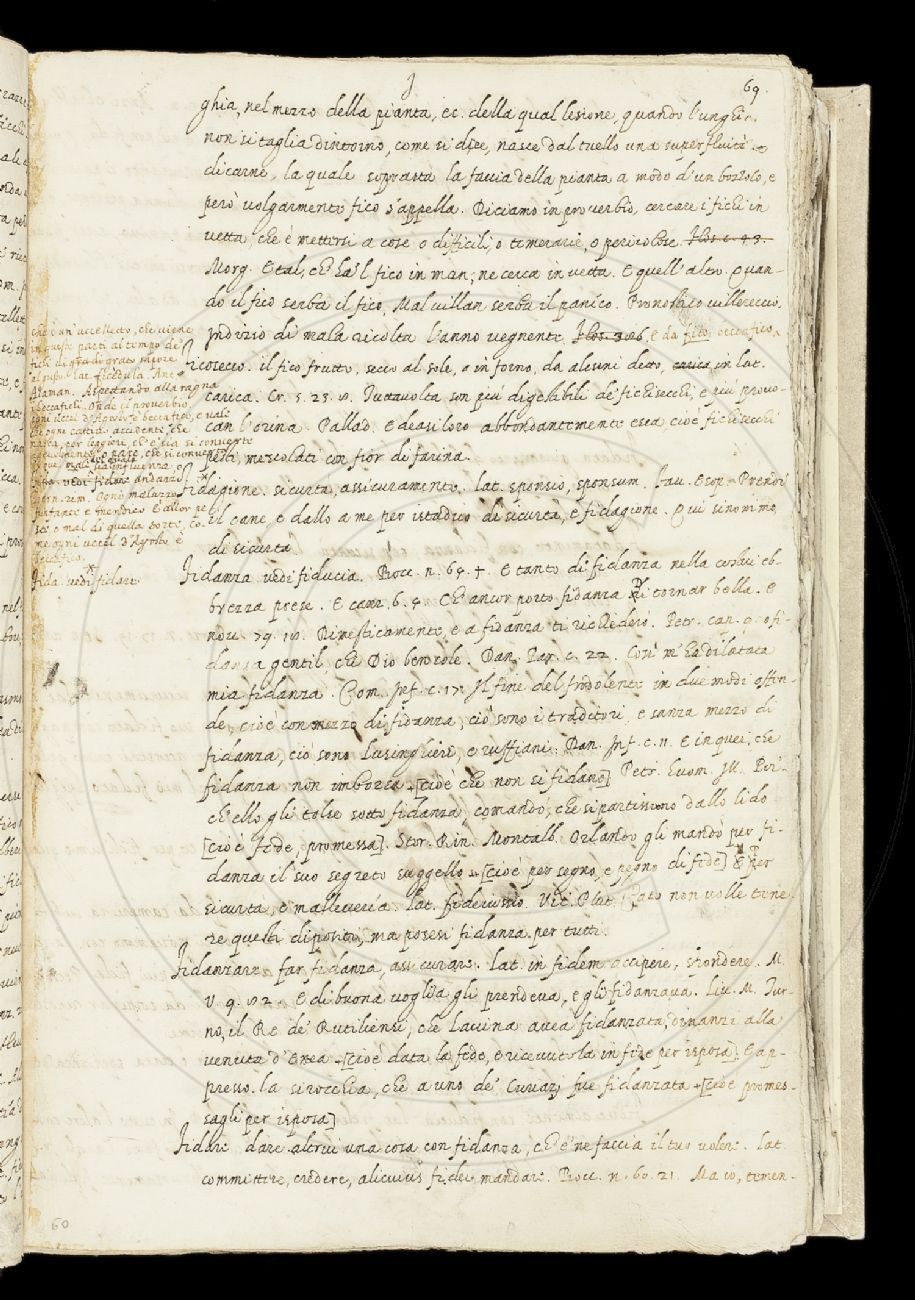 69.
ghia, nel mezzo della pianta, ec. della qual lesione, quando l'unghia
non si taglia dintorno, come si dice, nasce dal tuello una superfluità
di carne, la quale soprasta la faccia della pianta a modo d'un bozzolo, e
però volgarmente fico s'appella. Diciamo in proverbio, cercare i fichi in
vetta che è mettersi a cose o difficili, o temerarie, o pericolose.
Morg. E tal, ch'ha 'l fico in man, ne cerca in vetta. E quell'altro. Quan-
do il fico serba il fico, Mal villan serba il panico. Pronostico villereccio.
Indizio di mala ricolta l'anno vegnente. e da fico, beccafico,
ficosecco. il fico frutto, secco al sole, o in forno, da alcuni detto, carica, in lat.
carica. Cr. 5. 23. Tuttavolta son più digestibili de' fichisecchi, e più provo-
can l'orina. Pallad. E deasi loro abbondantemente esca cioè fichisecchi
pesti, mescolati con fior di farina.
fidagione. sicurtà, assicuramento. lat. sponsio, sponsum. Fav. Esop. Prendi
il cane, e dallo a me per istadico di sicurtà, e fidagione. Qui sinonimo
di sicurtà
fidanza vedi fiducia. Bocc. n. 64. E tanto di fidanza nella costui eb-
brezza prese. E canz. 6. 4. Ch'ancor porto fidanza di tornar bella. E
nov. 79. 10. Dimesticamente, e a fidanza ti richiedero. Petr. can. 9. o fi-
danza gentil, chi Dio ben cole. Dan. Par. c. 22. Così m'ha dilatata
mia fidanza. Com. Inf. c. 17. Il fine del frodolente in due modi offen-
de, cioè con mezzo di fidanza, ciò sono i traditori, e sanza mezzo di
fidanza, ciò sono lusinghieri, e ruffiani. Dan. Inf. c. 11. E in quei, che
fidanza non imborsa [cioè che non si fidano] Petr. Huom. Ill. Per-
ch'ello gli tolse sotto fidanza, comandò, che si partissono dallo lido
[cioè fede, promessa]. Stor. Rin. Montalb. Orlando gli mandò per fi-
danza il suo segreto suggello [cioè per segno, e pegno di fide] per
sicurtà, e malleveria. lat. fideiussio. Vit. Plut. Cato non volle tene-
re questi dipositi, ma posesi fidanza per tutti.
fidanzare far fidanza, assicurare. lat. in fidem accipere, spondere. M.
V. 9. 102. E di buona voglia gli prendeva, e gli fidanzava. Liv. M. Tur-
no, il Re de' Rutiliensi, che Lavina avea fidanzata, dinanzi alla
venuta d'Enea [cioè data la fede, e ricevutola in fede per isposa]. E ap-
presso. la sirocchia, che a uno de' Curiazj fue fidanzata [cioè promes-
sagli per isposa]
fidare dare altrui una cosa con fidanza, ch'e' ne faccia il tuo volere. lat.
committere, credere, alicuius fidei mandare. Bocc. n. 60. 21. Ma io, temen-
che è un'uccelletto, che viene
in questi paesi al tempo de'
fichi di grato sapore
lat. ficedula.
Alaman. Aspettando alla ragna
i beccafichi. Onde il proverbio
ogni uccel d'Agosto è beccafico, e vale
che ogni cattivo accidente, che
nasca, per leggieri, ch'e' sia si converte
vedi fidare andazzo.
Ogni malazzo
come ogni uccel d'Agosto è
beccafico.
fida. vedi fidare
60